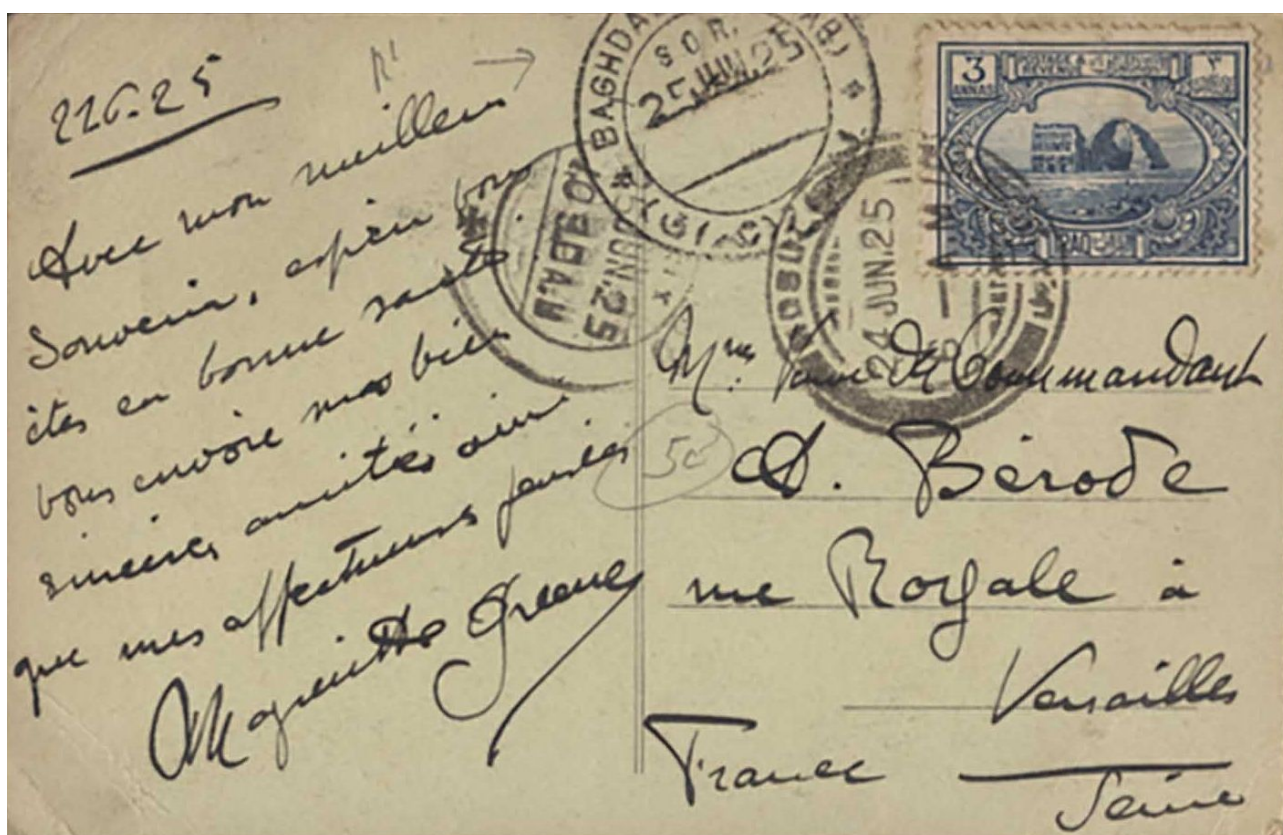 22 6. 25
Avec mon meilleur
Souvenir, espère vous
êtes en bonne santé.
vous envoie mes bien
sincères amitiés ainsi
que mes affectueuses pensées
Greene
BAGHDAD
S.O.R.
25 JUN. 25
25 JUN. 25
24 JUN. 25
3
ANNAS
POSTAGE &
REVENUE
٣
IRAQ
Mme
Commandant
A. Bérode
rue Royale à
Versailles
France Seine
50